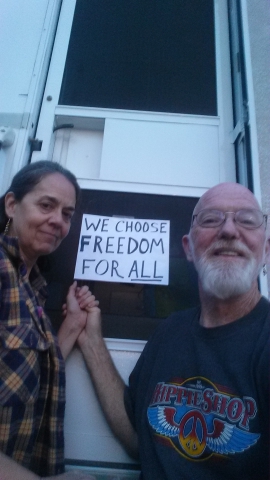 WE CHOOSE
FREEDOM
FOR ALL
HIPPIE SHOP